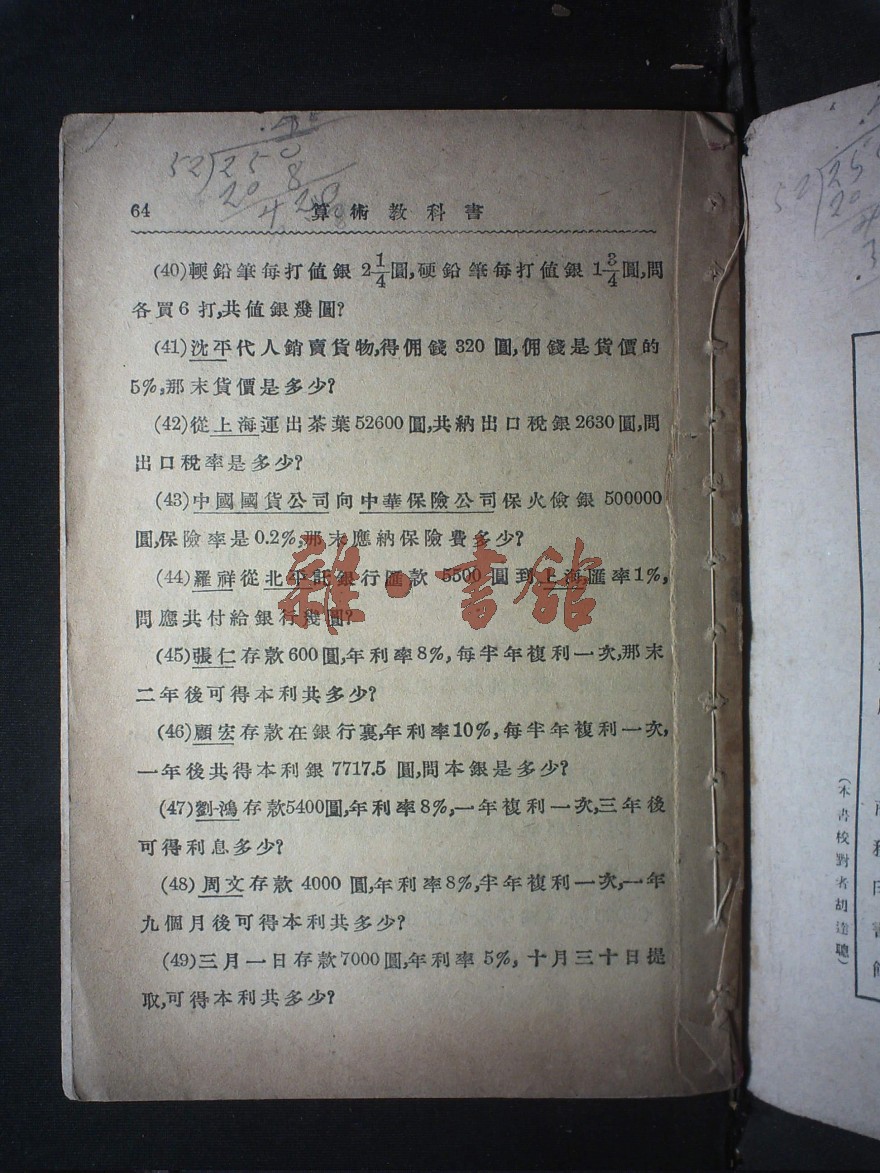 64 算術教科書
(40)輭鉛筆每打值銀 2 1/4 圓,硬鉛筆每打值銀 1 3/4 圓,問
各買6打,共值銀幾圓?
(41)沈平代人銷賣貨物,得佣錢 320 圓,佣錢是貨價的
5%,那末貨價是多少?
(42)從上海運出茶葉52600圓,共納出口稅銀2630圓,問
出口稅率是多少?
(43)中國國貨公司向中華保險公司保火險銀 500000
圓,保險率是0.2%,那末應納保險費多少?
(44)羅祥從北平託銀行匯款 5500 圓到上海匯率1%,
問應共付給銀行幾圓?
(45)張仁存款600圓,年利率8%,每半年複利一次,那末
二年後可得本利共多少?
(46)顧宏存款在銀行裏,年利率10%,每半年複利一次,
一年後共得本利銀 7717.5 圓,問本銀是多少?
(47)劉鴻存款5400圓,年利率8%,一年複利一次,三年後
可得利息多少?
(48)周文存款 4000 圓,年利率8%,半年複利一次,一年
九個月後可得本利共多少?
(49)三月一日存款7000圓,年利率 5%,十月三十日提
取,可得本利共多少?
雜·書館
52)250
20 8
4 20
(本書校對者胡達聰)